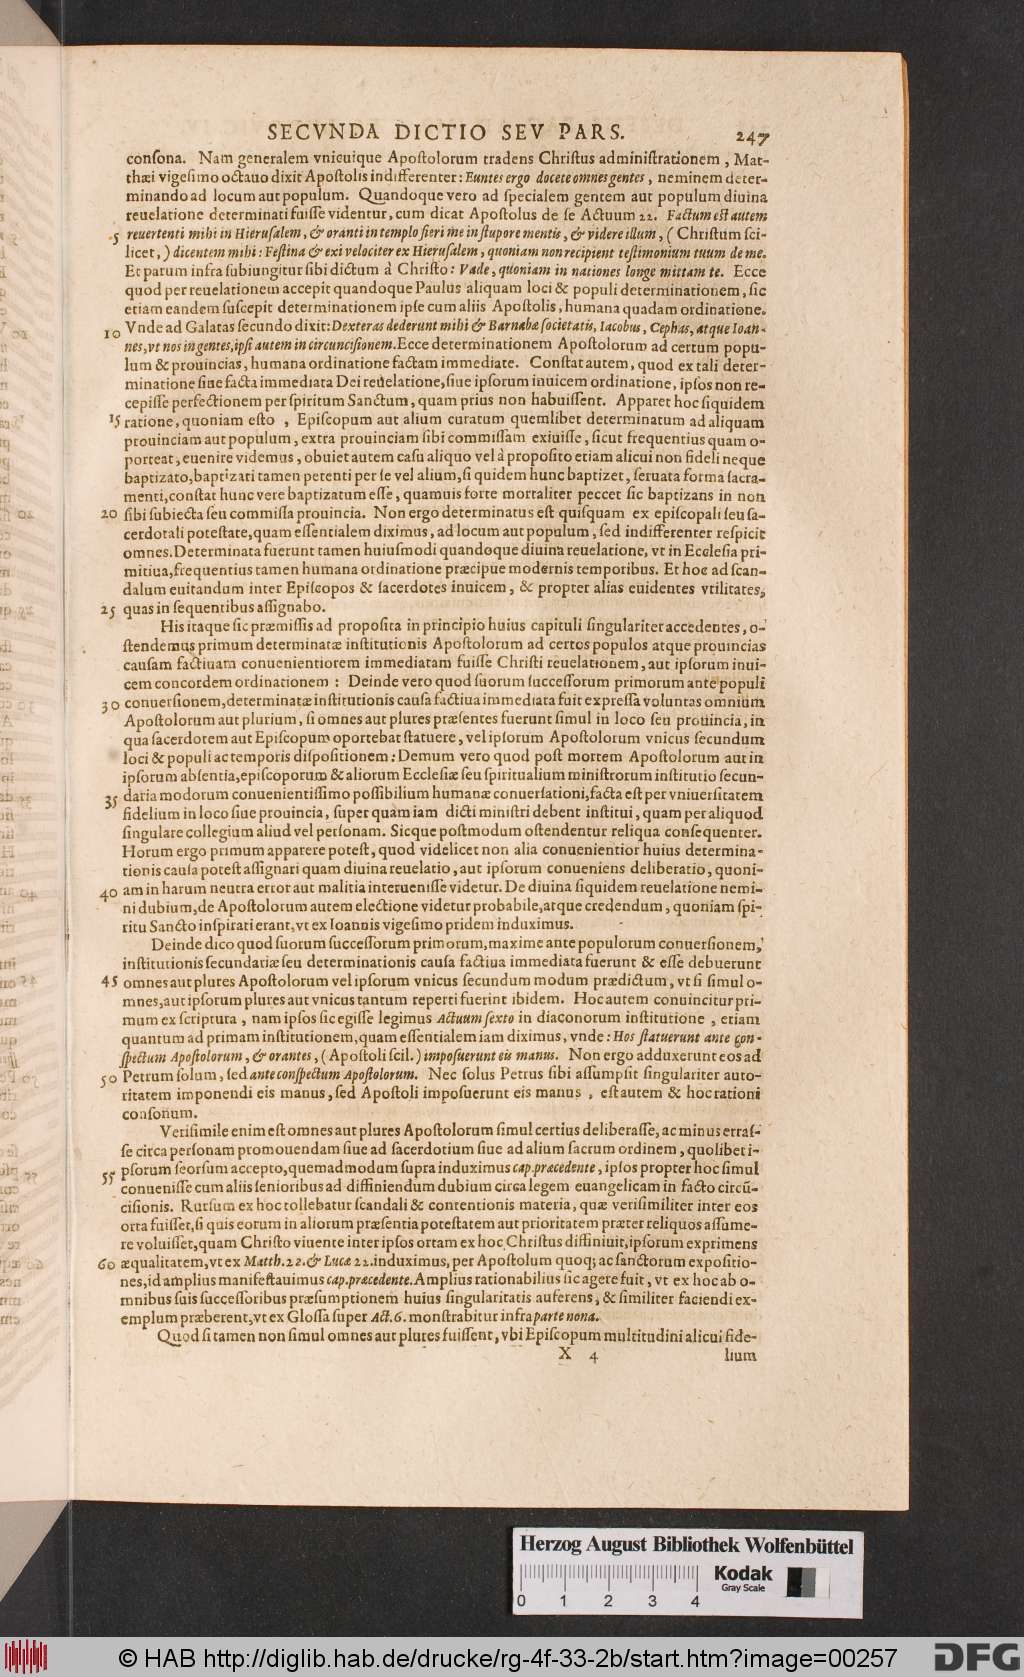 SECVNDA DICTIO SEV PARS. 247
consona. Nam generalem vnicuique Apostolorum tradens Christus administrationem, Mat-
thæi vigesimo octauo dixit Apostolis indifferenter: Euntes ergo docete omnes gentes, neminem deter-
minando ad locum aut populum. Quandoque vero ad specialem gentem aut populum diuina
reuelatione determinati fuisse videntur, cum dicat Apostolus de se Actuum 22. Factum est autem
5 reuertenti mihi in Hierusalem, & oranti in templo fieri me in stupore mentis, & videre illum, (Christum sci-
licet,) dicentem mihi: Festina & exi velociter ex Hierusalem, quoniam non recipient testimonium tuum de me.
Et parum infra subiungitur sibi dictum à Christo: Vade, quoniam in nationes longe mittam te. Ecce
quod per reuelationem accepit quandoque Paulus aliquam loci & populi determinationem, sic
etiam eandem suscepit determinationem ipse cum aliis Apostolis, humana quadam ordinatione.
10 Vnde ad Galatas secundo dixit: Dexteras dederunt mihi & Barnabæ societatis, Iacobus, Cephas, atque Ioan-
nes, vt nos in gentes, ipsi autem in circuncisionem. Ecce determinationem Apostolorum ad certum popu-
lum & prouincias, humana ordinatione factam immediate. Constat autem, quod ex tali deter-
minatione siue facta immediata Dei reuelatione, siue ipsorum inuicem ordinatione, ipsos non re-
cepisse perfectionem per spiritum Sanctum, quam prius non habuissent. Apparet hoc siquidem
15 ratione, quoniam esto , Episcopum aut alium curatum quemlibet determinatum ad aliquam
prouinciam aut populum, extra prouinciam sibi commissam exiuisse, sicut frequentius quam o-
porteat, euenire videmus, obuiet autem casu aliquo vel à proposito etiam alicui non fideli neque
baptizato, baptizari tamen petenti per se vel alium, si quidem hunc baptizet, seruata forma sacra-
menti, constat hunc vere baptizatum esse, quamuis forte mortaliter peccet sic baptizans in non
20 sibi subiecta seu commissa prouincia. Non ergo determinatus est quisquam ex episcopali seu sa-
cerdotali potestate, quam essentialem diximus, ad locum aut populum, sed indifferenter respicit
omnes. Determinata fuerunt tamen huiusmodi quandoque diuina reuelatione, vt in Ecclesia pri-
mitiua, frequentius tamen humana ordinatione præcipue modernis temporibus. Et hoc ad scan-
dalum euitandum inter Episcopos & sacerdotes inuicem, & propter alias euidentes vtilitates,
25 quas in sequentibus assignabo.
His itaque sic præmissis ad proposita in principio huius capituli singulariter accedentes, o-
stendemus primum determinatæ institutionis Apostolorum ad certos populos atque prouincias
causam factiuam conuenientiorem immediatam fuisse Christi reuelationem, aut ipsorum inui-
cem concordem ordinationem : Deinde vero quod suorum successorum primorum ante populi
30 conuersionem, determinatæ institutionis causa factiua immediata fuit expressa voluntas omnium
Apostolorum aut plurium, si omnes aut plures præsentes fuerunt simul in loco seu prouincia, in
qua sacerdotem aut Episcopum oportebat statuere, vel ipsorum Apostolorum vnicus secundum
loci & populi ac temporis dispositionem: Demum vero quod post mortem Apostolorum aut in
ipsorum absentia, episcoporum & aliorum Ecclesiæ seu spiritualium ministrorum institutio secun-
35 daria modorum conuenientissimo possibilium humanæ conuersationi, facta est per vniuersitatem
fidelium in loco siue prouincia, super quàm iam dicti ministri debent institui, quam per aliquod
singulare collegium aliud vel personam. Sicque postmodum ostendentur reliqua consequenter.
Horum ergo primum apparere potest, quod videlicet non alia conuenientior huius determina-
tionis causa potest assignari quam diuina reuelatio, aut ipsorum conueniens deliberatio, quoni-
40 am in harum neutra error aut malitia interuenisse videtur. De diuina siquidem reuelatione nemi-
ni dubium, de Apostolorum autem electione videtur probabile, atque credendum, quoniam spi-
ritu Sancto inspirati erant, vt ex Ioannis vigesimo pridem induximus.
Deinde dico quod suorum successorum primorum, maxime ante populorum conuersionem,
institutionis secundariæ seu determinationis causa factiua immediata fuerunt & esse debuerunt
45 omnes aut plures Apostolorum vel ipsorum vnicus secundum modum prædictum, vt si simul o-
mnes, aut ipsorum plures aut vnicus tantum reperti fuerint ibidem. Hoc autem conuincitur pri-
mum ex scriptura , nam ipsos sic egisse legimus Actuum sexto in diaconorum institutione , etiam
quantum ad primam institutionem, quam essentialem iam diximus, vnde: Hos statuerunt ante con-
spectum Apostolorum, & orantes, (Apostoli scil.) imposuerunt eis manus. Non ergo adduxerunt eos ad
50 Petrum solum, sed ante conspectum Apostolorum. Nec solus Petrus sibi assumpsit singulariter auto-
ritatem imponendi eis manus, sed Apostoli imposuerunt eis manus , est autem & hoc rationi
consonum.
Verisimile enim est omnes aut plures Apostolorum simul certius deliberasse, ac minus erras-
se circa personam promouendam siue ad sacerdotium siue ad alium sacrum ordinem, quolibet i-
55 psorum seorsum accepto, quemadmodum supra induximus cap. præcedente, ipsos propter hoc simul
conuenisse cum aliis senioribus ad diffiniendum dubium circa legem euangelicam in facto circũ-
cisionis. Rursum ex hoc tollebatur scandali & contentionis materia, quæ verisimiliter inter eos
orta fuisset, si quis eorum in aliorum præsentia potestatem aut prioritatem præter reliquos assume-
re voluisset, quam Christo viuente inter ipsos ortam ex hoc Christus diffiniuit, ipsorum exprimens
60 æqualitatem, vt ex Matth. 22. & Lucæ 22. induximus, per Apostolum quoq; ac sanctorum expositio-
nes, id amplius manifestauimus cap. præcedente. Amplius rationabilius sic agere fuit, vt ex hoc ab o-
mnibus suis successoribus præsumptionem huius singularitatis auferens, & similiter faciendi ex-
emplum præberent, vt ex Glossa super Act. 6. monstrabitur infra parte nona.
Quod si tamen non simul omnes aut plures fuissent, vbi Episcopum multitudini alicui fide-
X 4 lium
Herzog August Bibliothek Wolfenbüttel
0 1 2 3 4
Kodak
Gray Scale
© HAB http://diglib.hab.de/drucke/rg-4f-33-2b/start.htm?image=00257
DFG